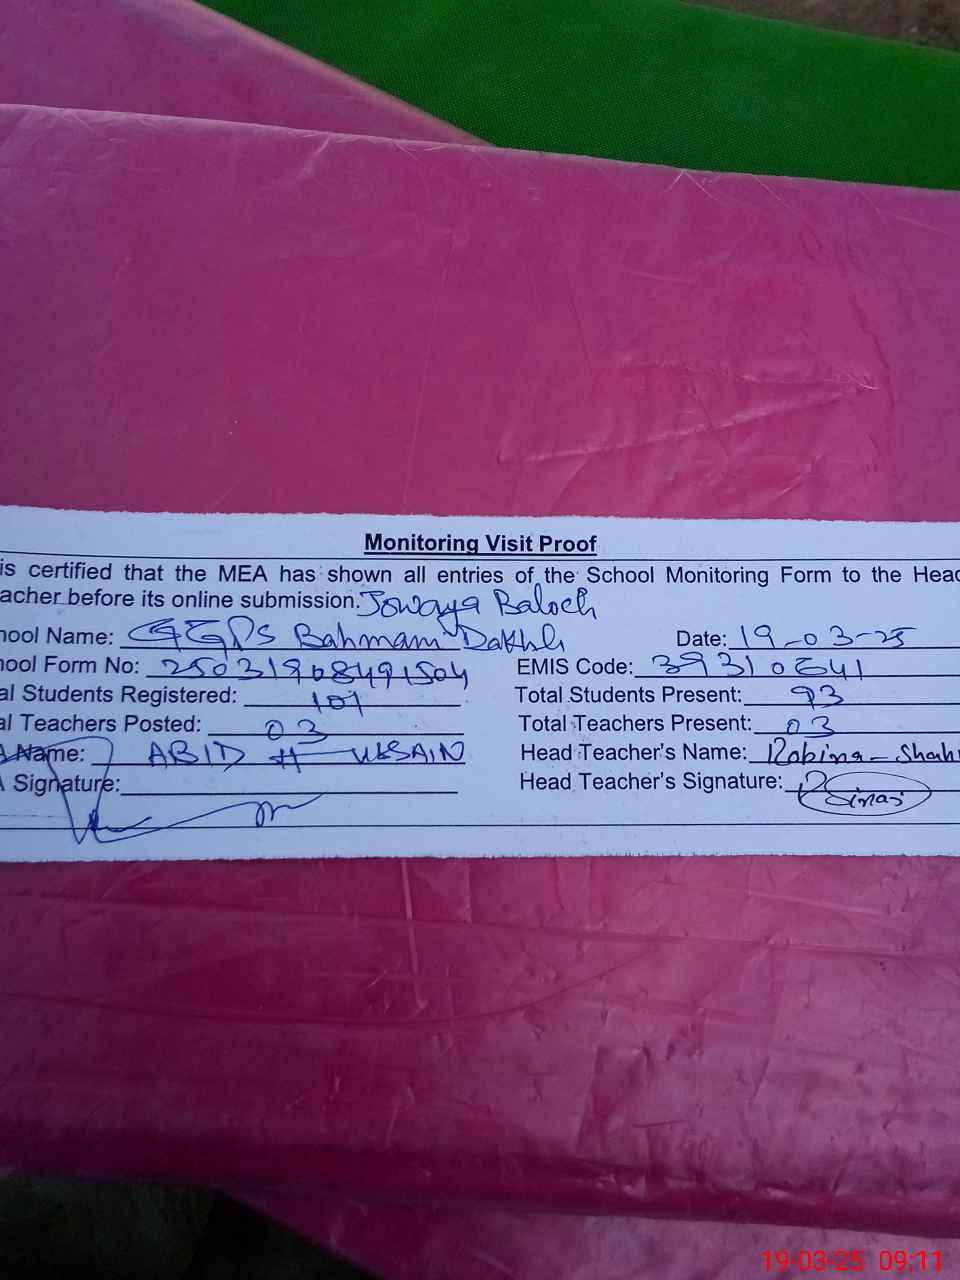 Monitoring Visit Proof
is certified that the MEA has shown all entries of the School Monitoring Form to the Head
acher before its online submission. Jowaya Baloch
hool Name: GGPS Bahmani Dakhli Date: 19-03-25
hool Form No: 25031908491504 EMIS Code: 39310641
al Students Registered: 101 Total Students Present: 93
al Teachers Posted: 03 Total Teachers Present: 03
Name: ABID HUSSAIN Head Teacher's Name: Robina-Shah
Signature: Head Teacher's Signature:
19-03-25 09:11